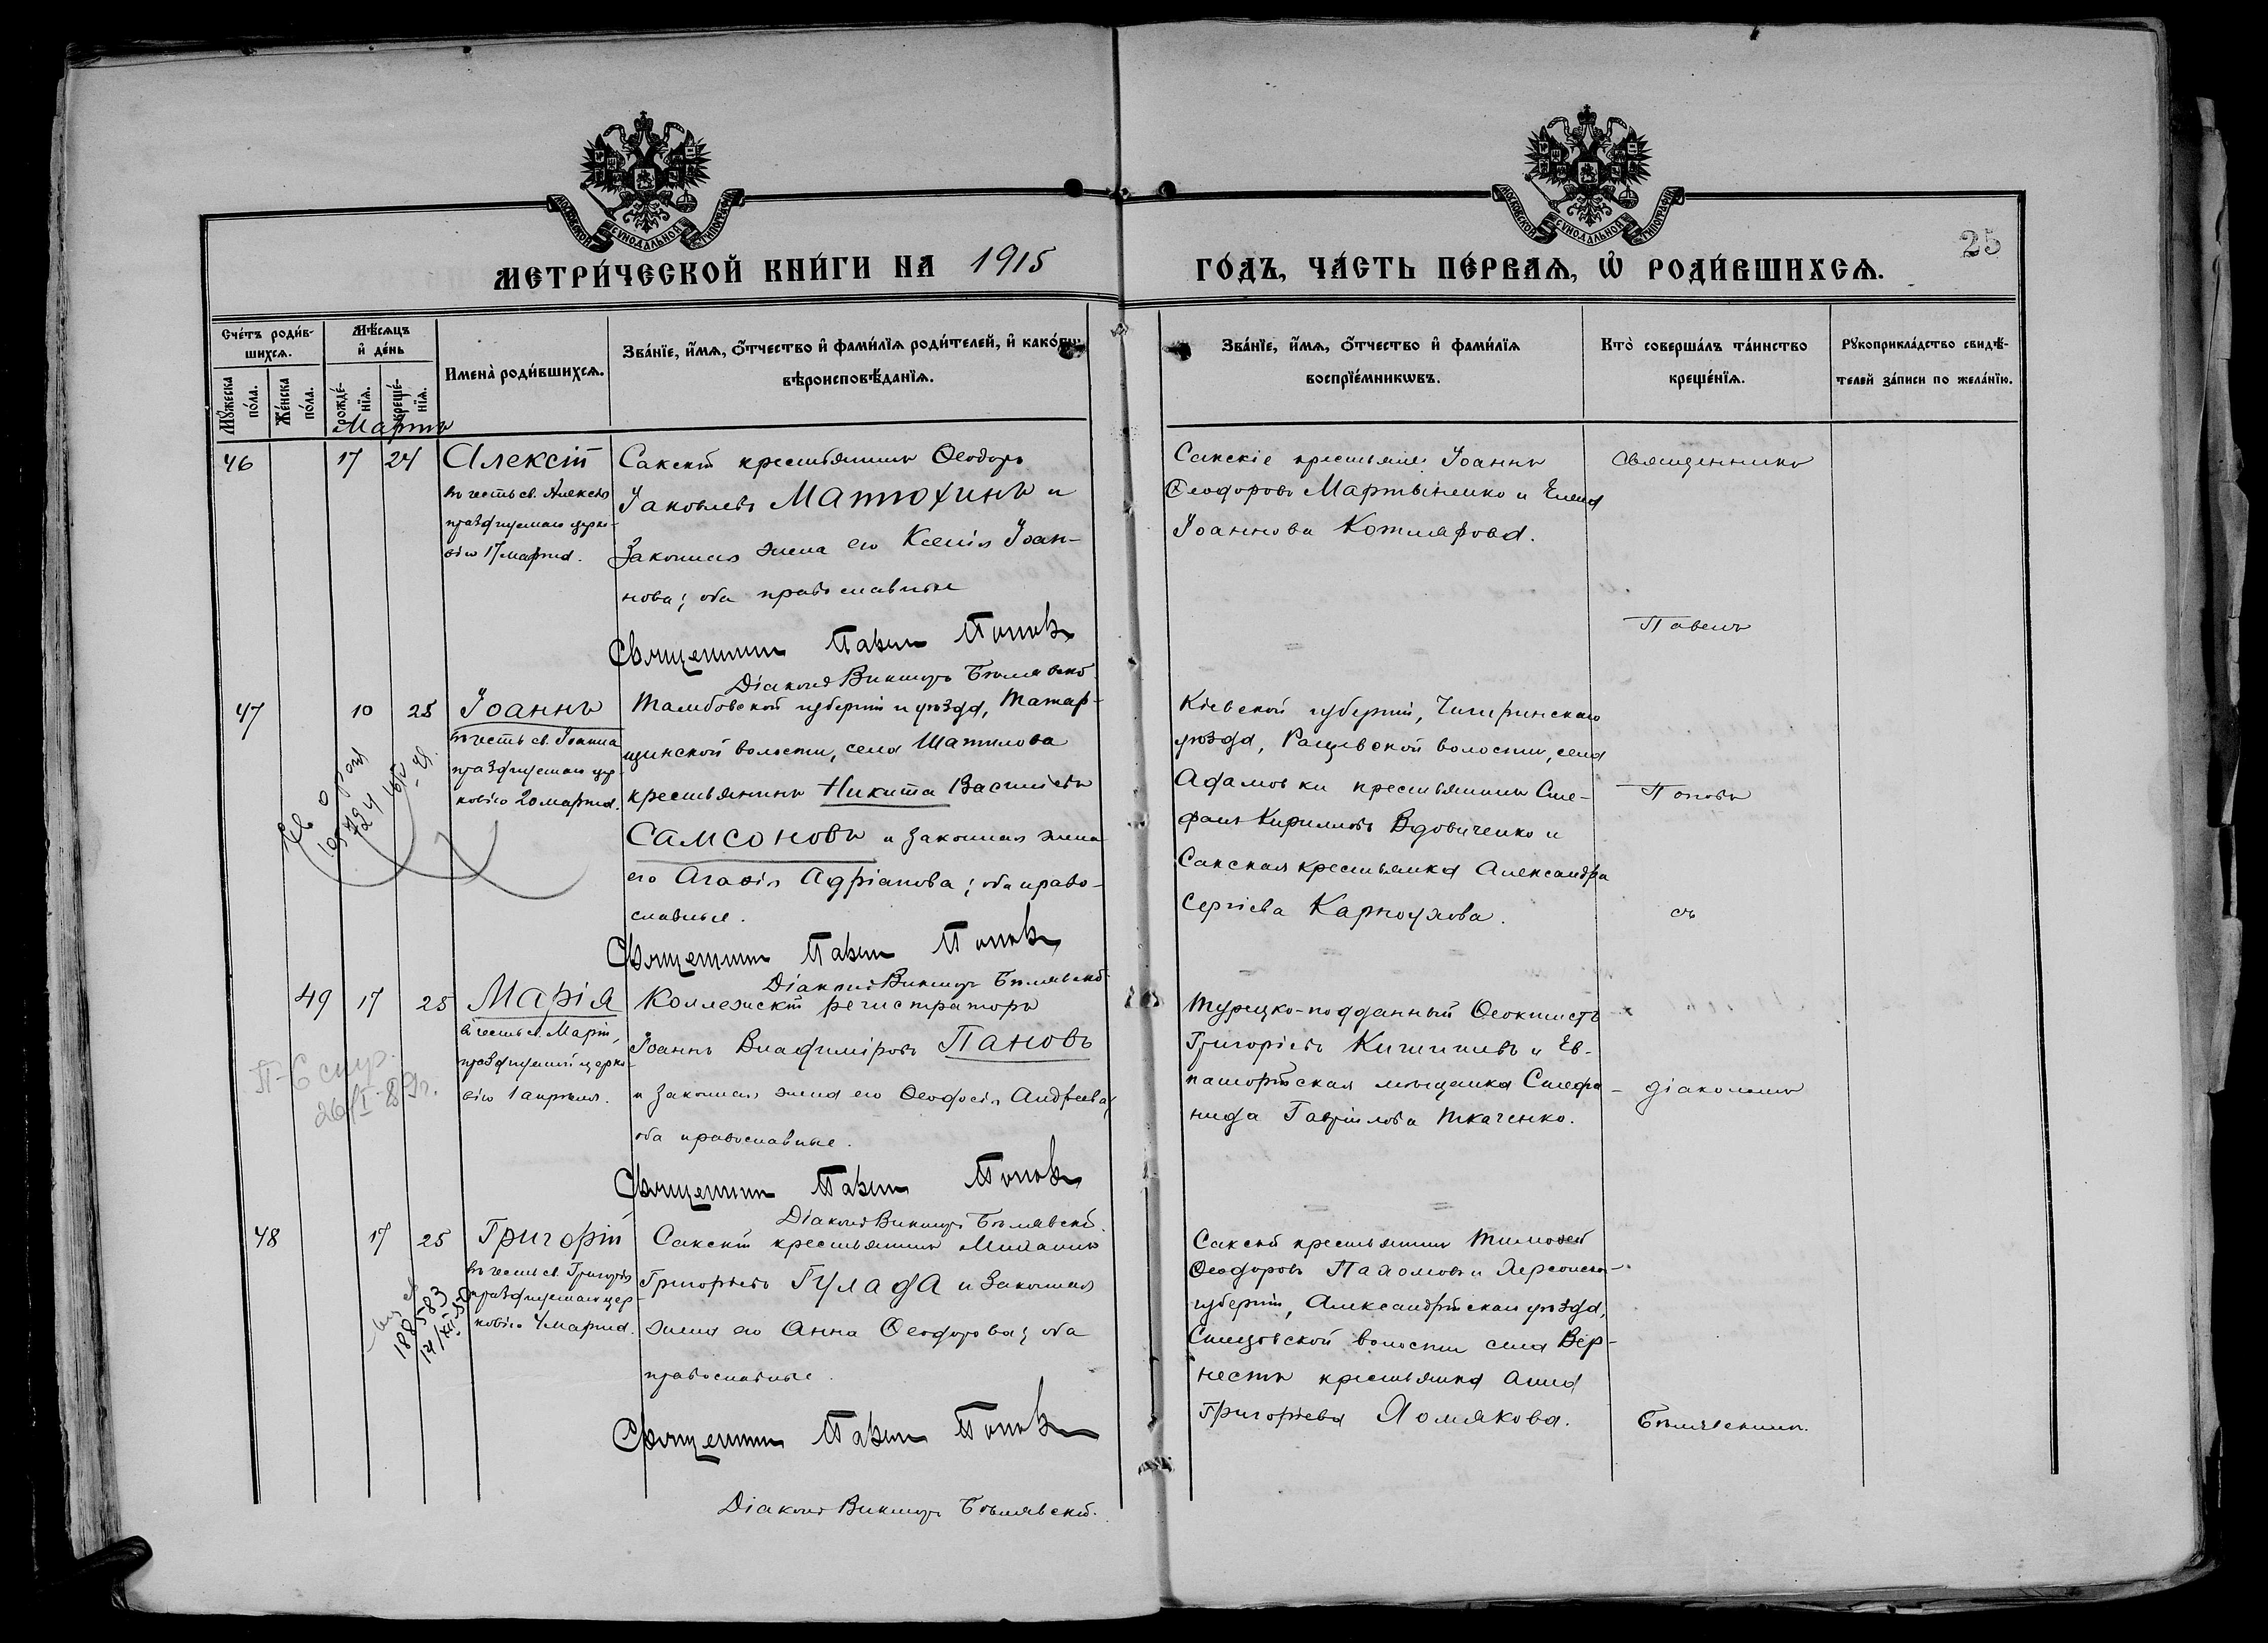 МОСКОВСКОЙ СѴНОДАЛЬНОЙ ТИПОГРАФІИ
МОСКОВСКОЙ СѴНОДАЛЬНОЙ ТИПОГРАФІИ
МЕТРИ́ЧЕСКОЙ КНИ́ГИ НА 1915
ГО́ДЪ, ЧА́СТЬ ПЕ́РВАѦ, Ѡ҆ РОДИ́ВШИХСѦ.
25
Сче́тъ роди́в-
шихсѧ.
Мꙋ́жеска
по́ла.
Же́нска
по́ла.
Мѣ́сѧцъ
и҆ де́нь
рожде́-
нїѧ.
креще́-
нїѧ.
Имена̀ роди́вшихсѧ.
Зва́нїе, и҆́мѧ, ѻ҆́тчество и҆ фами́лїѧ роди́телей, и҆ како́гѡ
вѣроисповѣ́данїѧ.
Зва́нїе, и҆́мѧ, ѻ҆́тчество и҆ фами́лїѧ
воспрїе́мникѡвъ.
Кто̀ соверша́лъ та́инство
креще́нїѧ.
Рꙋкоприкла́дство свидѣ́-
телей за́писи по жела́нїю.
Мартъ
46 17 24 Алексій
въ честь св. Алексѣя
празднуемаго церко-
вію 17 марта.
Сакскій крестьянинъ Ѳеодоръ
Іаковлевъ Матюхинъ и
законная жена его Ксенія Іоан-
нова; оба православные
Священникъ Павелъ Поповъ
Діаконъ Викторъ Бѣлявскій
Сакскіе крестьяне: Іоаннъ
Ѳеодоровъ Мартыненко и Елена
Іоаннова Котлярова.
Священникъ
Павелъ
47 10 25 Іоаннъ
въ честь св. Іоанна
празднуемаго цер-
ковію 20 марта.
Тамбовской губерніи и уѣзда, Татар-
щинской волости, села Шатилова
крестьянинъ Никита Васильевъ
Самсоновъ и законная жена
его Агаѳія Адріанова; оба право-
славные.
Священникъ Павелъ Поповъ
Діаконъ Викторъ Бѣлявскій
Кіевской губерніи, Чигиринскаго
уѣзда, волости, села
Адамовки крестьянинъ Сте-
фанъ Кирилловъ Вдовиченко и
Сакская крестьянка Александра
Сергіева Карноухова.
Поповъ
съ
49 17 25 Марія
въ честь св. Маріи,
празднуемой церко-
вію 1 апрѣля.
26/I-89г.
Коллежскій регистраторъ
Іоаннъ Владиміровъ Пановъ
и законная жена его Ѳеодосія Андреева,
оба православные.
Священникъ Павелъ Поповъ
Діаконъ Викторъ Бѣлявскій.
Турецко-подданный Ѳеоктистъ
Григоріевъ и Ев-
паторійская мѣщанка Стефа-
нида Гавріилова Ткаченко.
діакономъ
48 17 25 Григорій
въ честь св. Григорія
празднуемаго цер-
ковію 4 марта.
188583
Сакскій крестьянинъ
Григорьевъ Гулада и законная
жена его Анна Ѳеодорова; оба
православные.
Священникъ Павелъ Поповъ
Діаконъ Викторъ Бѣлявскій.
Сакскій крестьянинъ Тимоѳей
Ѳеодоровъ Пахомовъ и Херсонской
губерніи, Александрійскаго уѣзда,
волости села Вер-
крестьянка Анна
Григорьева Хомякова.
Бѣлявскимъ.